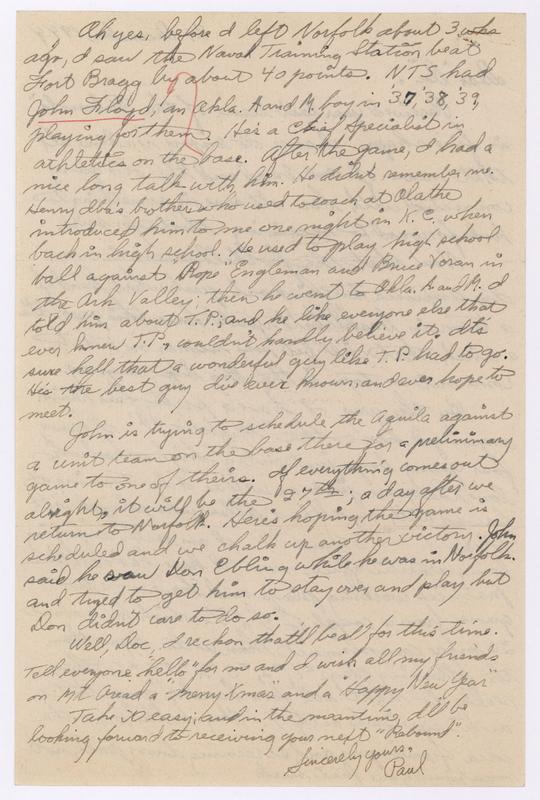 Ah yes, before I left Norfolk about 3 wks
ago, I saw the Naval Training Station beat
Fort Bragg by about 40 points. NTS had
John Floyd, an Okla. A and M boy in '37, '38, '39,
playing for them. He's a Chief Specialist in
athletics on the base. After the game, I had a
nice long talk with him. He didn't remember me.
Henry Iba's brother who used to coach at Olathe
introduced him to me one night in K.C. when
back in high school. He used to play high school
ball against "Rope" Engleman and Bruce Voran in
the Ark Valley; then he went to Okla. A and M. I
told him about T.P.; and he like everyone else that
ever knew T.P., couldn't hardly believe it. It's
sure hell that a wonderful guy like T.P. had to go.
His the best guy I've ever known, and ever hope to
meet.
John is trying to schedule the Aquila against
a unit team on the base there for a preliminary
game to one of theirs. If everything comes out
alright, it will be the 27th; a day after we
return to Norfolk. Here's hoping the game is
scheduled and we chalk up another victory. John
said he saw Don Ebling while he was in Norfolk
and tryed to get him to stay over and play but
Don didn't care to do so.
Well, Doc, I reckon that'll be all for this time.
Tell everyone "hello" for me and I wish all my friends
on Mt. Oread a "Merry Xmas" and a "Happy New Year"
Take it easy, and in the meantime, I'll be
looking forward to receiving your next "Rebound".
Sincerely yours,
Paul